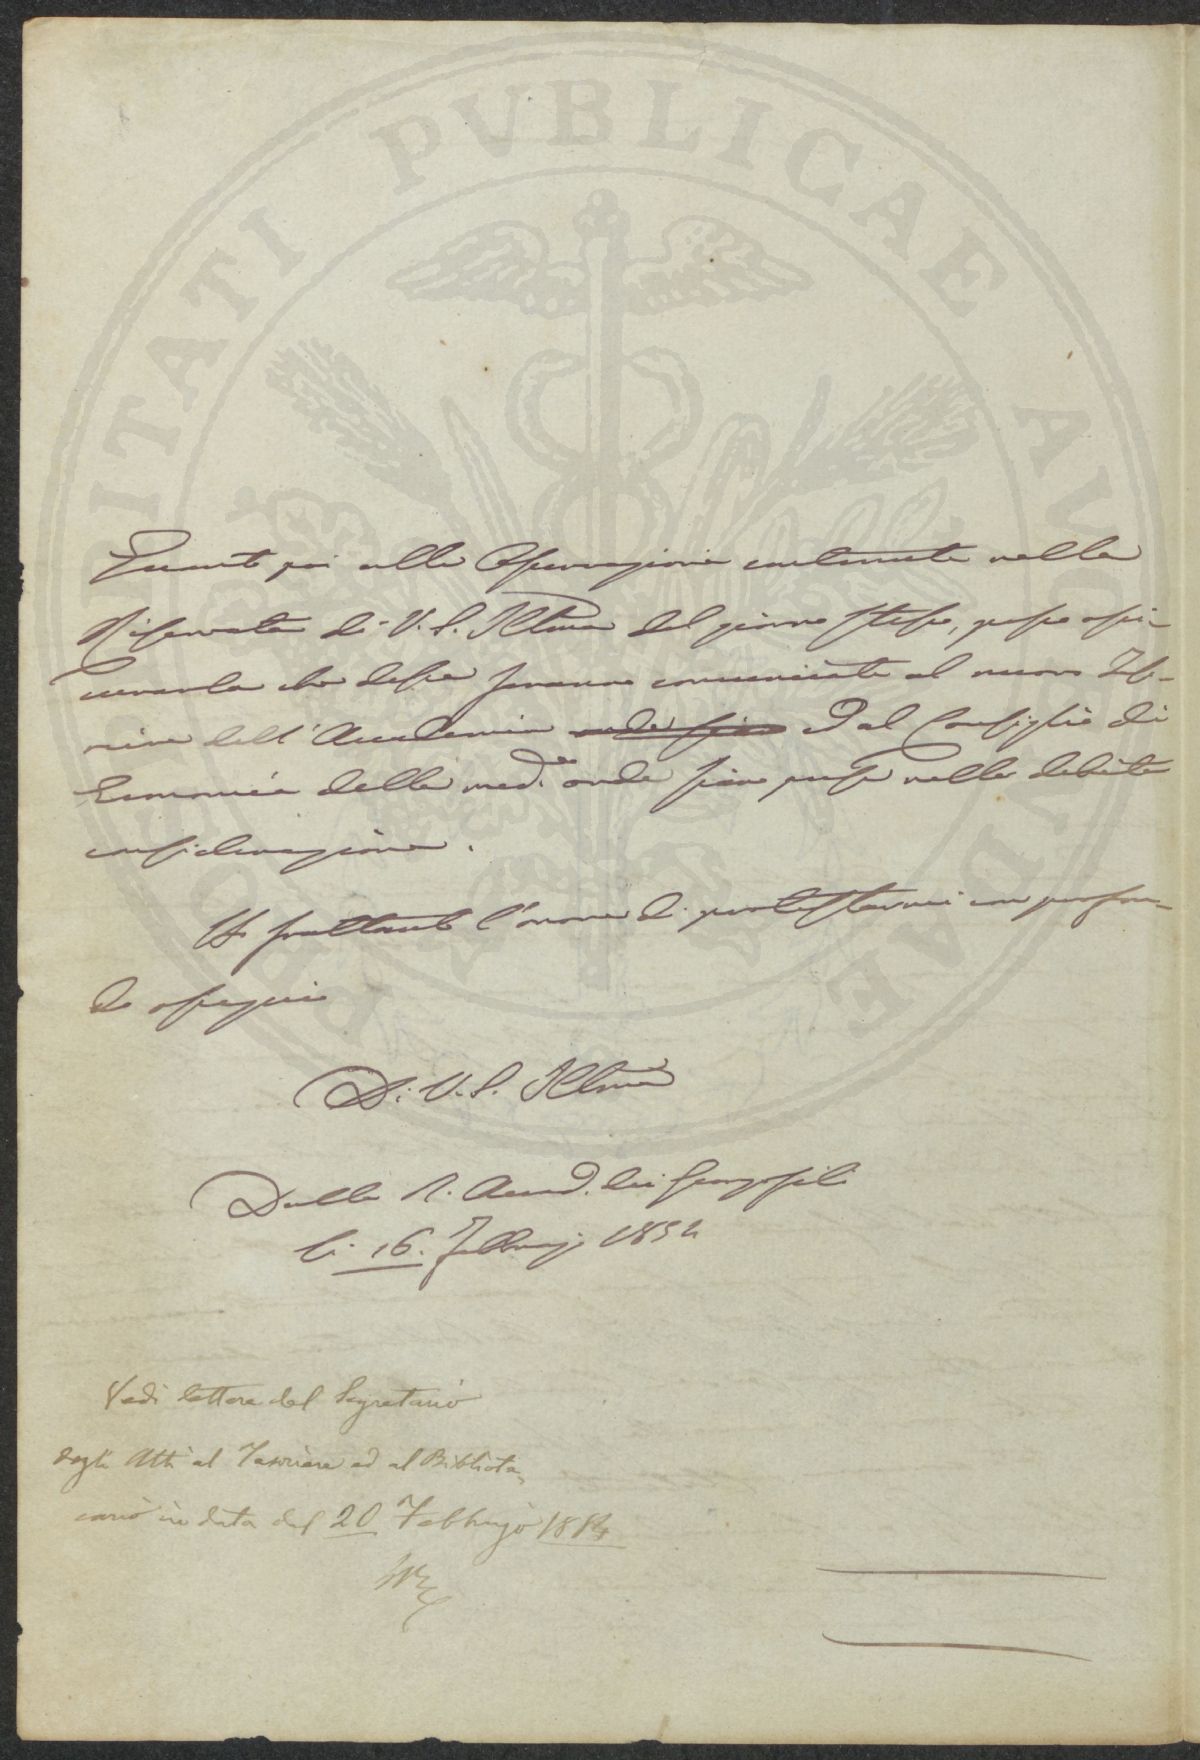 PROSPERITATI PUBLICAE AUGENDAE
Quanto poi alle Osservazioni contenute nella
Riservata di V. S. Illma del giorno stesso, posso assi-
curarla che desse saranno comunicate al nuovo Teso-
riere dell'Accademia onde sian ed al Consiglio di
Economia della med.a onde sian prese nella debita
considerazione.
Ho frattanto l'onore di protestarmi con profon-
do ossequio
Di V. S. Illma
Dalla R. Accad. dei Georgofili
li 16. Febbrajo 1854
Vedi lettere del Segretario
degli Atti al Tesoriere ed al Bibliote-
cario in data del 20 Febbrajo 1854